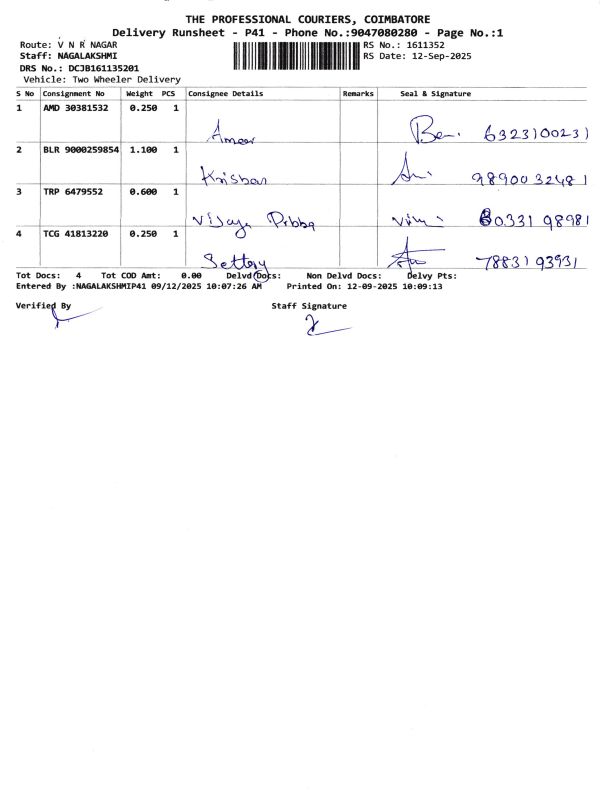 THE PROFESSIONAL COURIERS, COIMBATORE
Delivery Runsheet - P41 - Phone No.:9047080280 - Page No.:1
Route: V N R NAGAR RS No.: 1611352
Staff: NAGALAKSHMI RS Date: 12-Sep-2025
DRS No.: DCJB161135201
Vehicle: Two Wheeler Delivery
S No Consignment No Weight PCS Consignee Details Remarks Seal & Signature
1 AMD 30381532 0.250 1
Ameer 6323100231
2 BLR 9000259854 1.100 1
9890032481
3 TRP 6479552 0.600 1
Vijaya 6033198981
4 TCG 41813220 0.250 1
Settery 7883193931
Tot Docs: 4 Tot COD Amt: 0.00 Delvd Docs: Non Delvd Docs: Delvy Pts:
Entered By :NAGALAKSHMIP41 09/12/2025 10:07:26 AM Printed On: 12-09-2025 10:09:13
Verified By Staff Signature